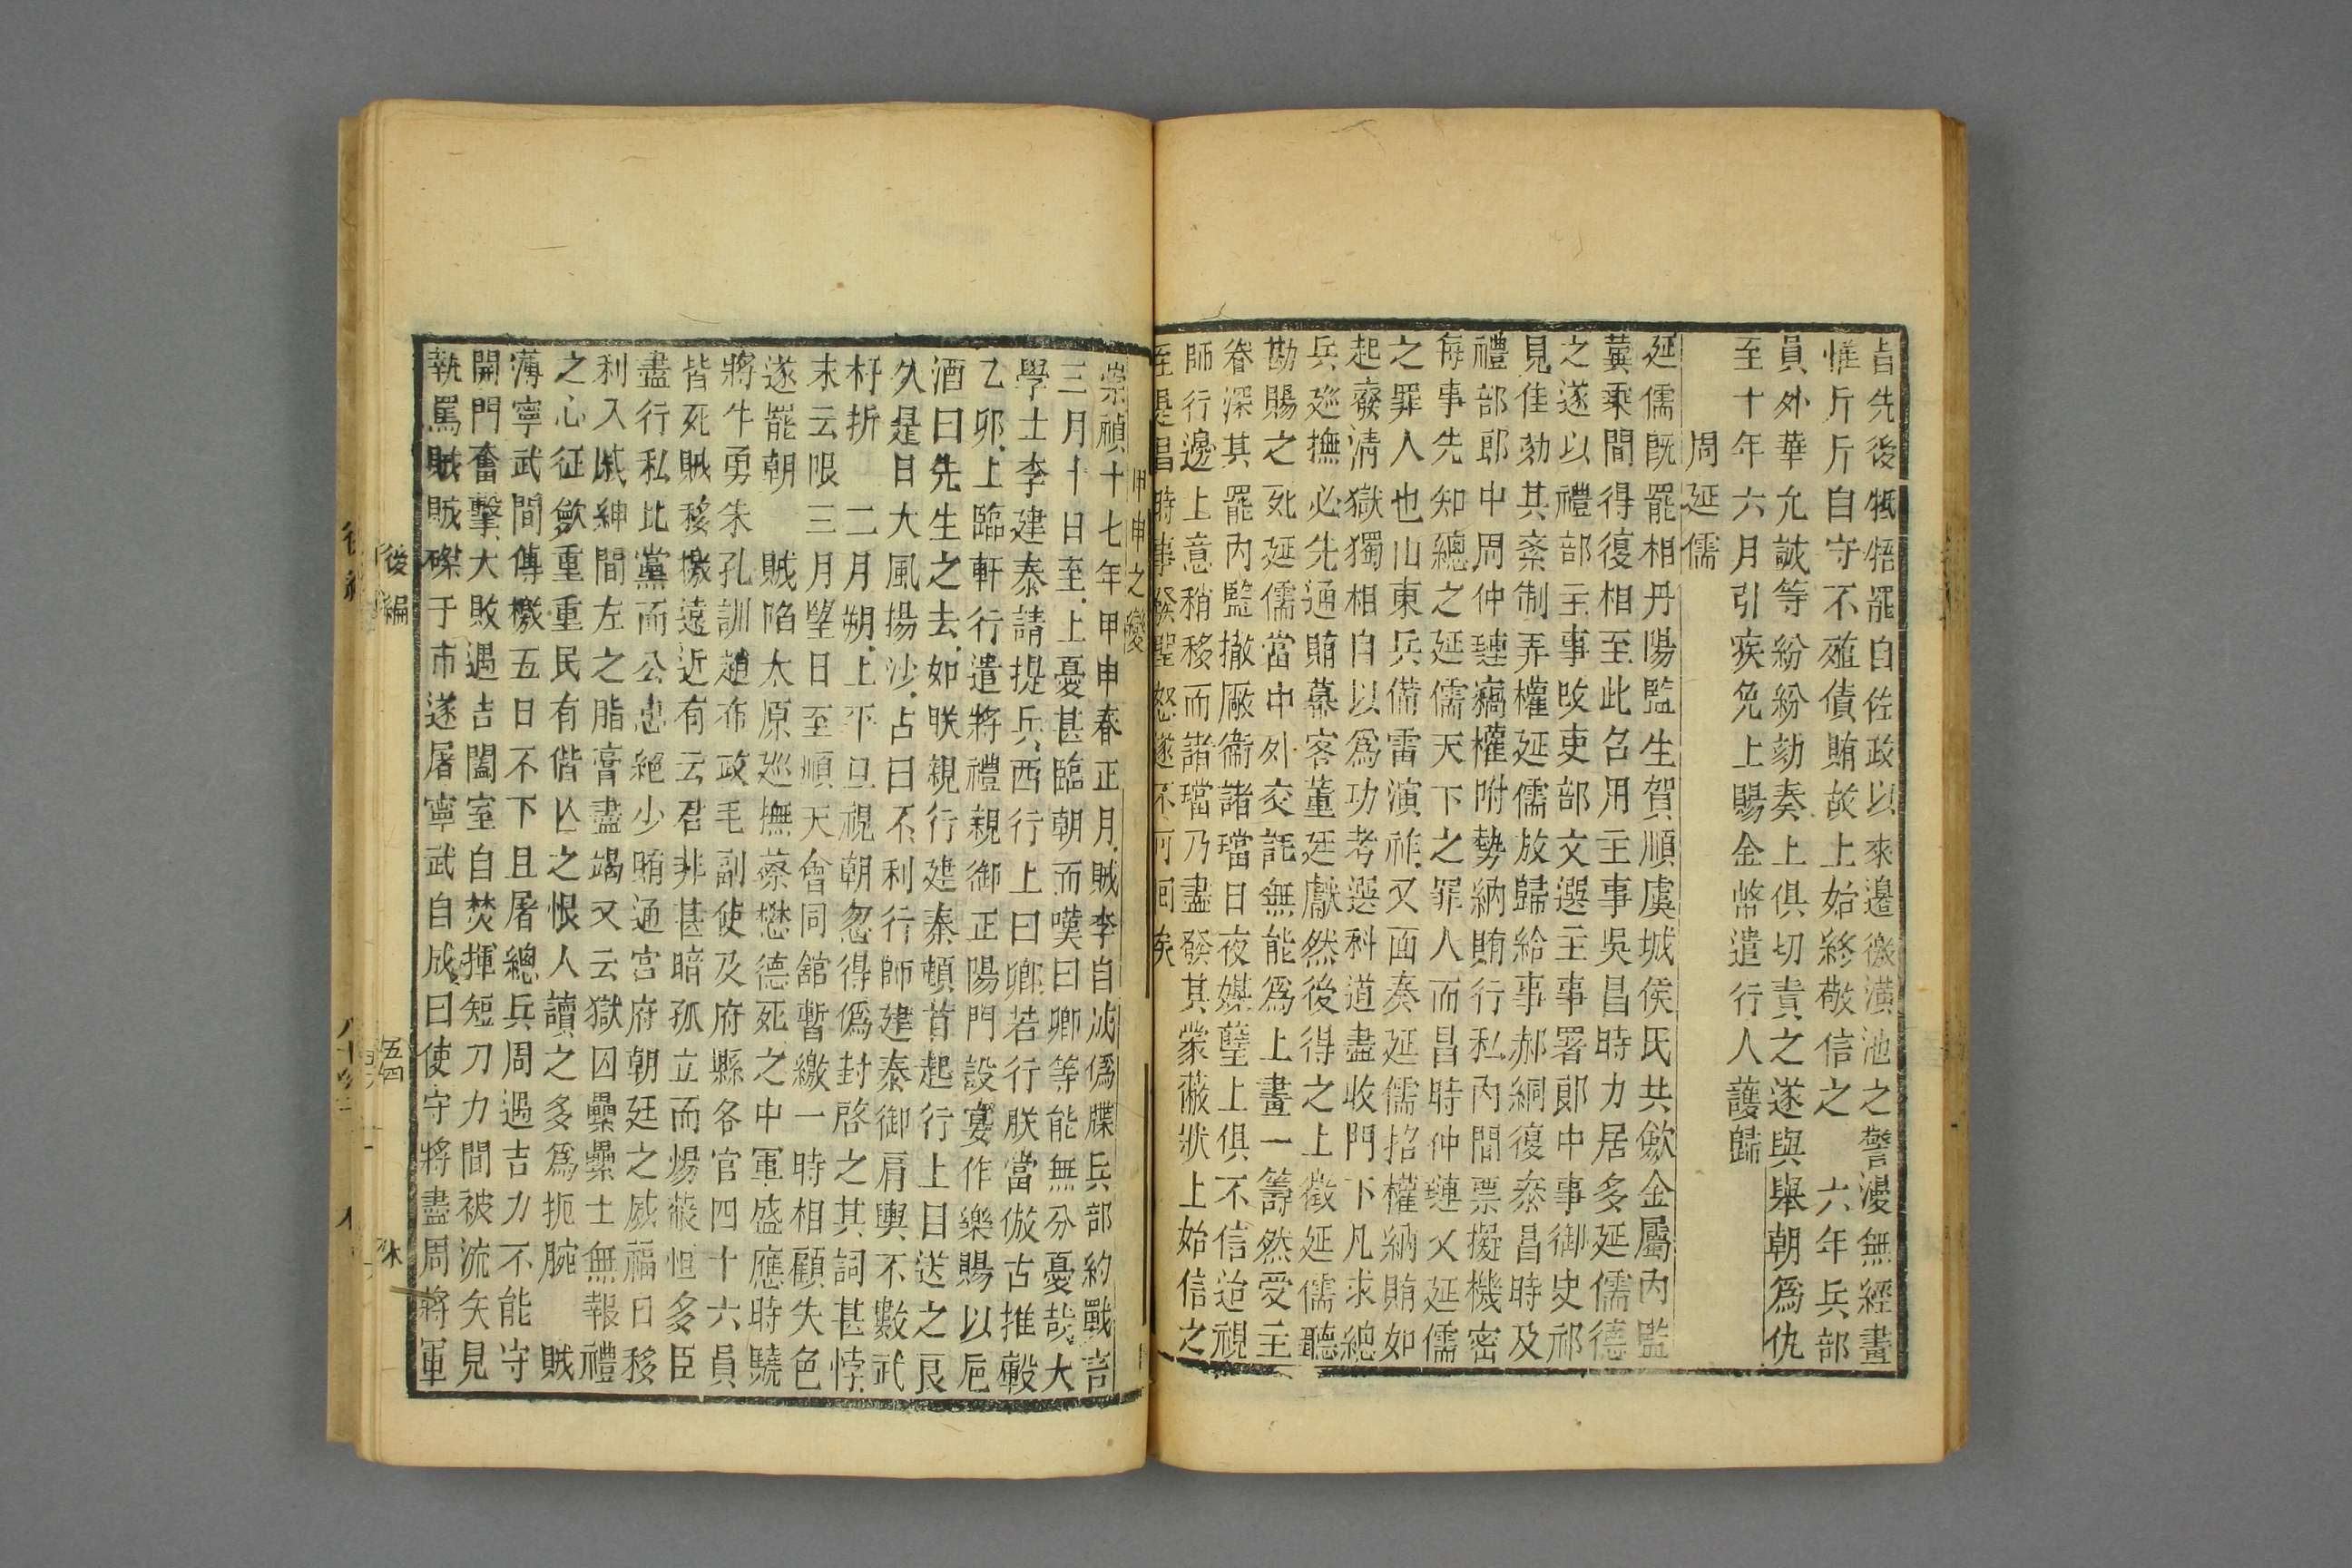 旨先後牴牾罷自佐政以來邊徼潢池之警漫無經畫
惟斤斤自守不殖債賄故上始終敬信之六年兵部
員外華允誠等紛紛劾奏上俱切責之遂與舉朝爲仇
至十年六月引疾免上賜金幣遣行人護歸
周延儒
延儒既罷相丹陽監生賀順虞城侯氏共斂金屬內監
冀乘間得復相至此召用主事吳昌時力居多延儒德
之遂以禮部主事改吏部文選主事署郎中事御史祁
見佳劾其紊制弄權延儒放歸給事郝絅復泰昌時及
禮部郎中周仲璉竊權附勢納賄行私內閣票擬機密
每事先知總之延儒天下之罪人而昌時仲璉又延儒
之罪人也山東兵備雷演祚又面奏延儒招權納賄如
起廢清獄獨相自以爲功考選科道盡收門下凡求總
兵廵撫必先通賄幕客董廷獻然後得之上徵延儒聽
勘賜之死延儒當中外交訌無能爲上畫一籌然受主
眷深其罷內監撤厰衞諸璫日夜媒孽上俱不信迨視
師行邊上意稍移而諸璫乃盡發其蒙蔽狀上始信之
至是昌時事發聖怒遂不可回矣
甲申之變
崇禎十七年甲申春正月賊李自成僞牒兵部約戰言
三月十日至上憂甚臨朝而嘆曰卿等能無分憂哉大
學士李建泰請提兵西行上曰卿若行朕當倣古推轂
乙卯上臨軒行遣將禮親御正陽門設宴作樂賜以巵
酒曰先生之去如朕親行建泰頓首起行上目送之良
久是日大風揚沙占曰不利行師建泰御肩輿不數武
杆折　二月朔上平旦視朝忽得僞封啓之其詞甚悖
末云限三月望日至順天會同舘暫繳一時相顧失色
遂罷朝　賊陷太原廵撫蔡懋德死之中軍盛應時驍
將牛勇朱孔訓趙布政毛副使及府縣各官四十六員
皆死賊移檄遠近有云君非甚暗孤立而煬蔽恒多臣
盡行私比黨而公忠絕少賄通宮府朝廷之威福日移
利入戚紳閭左之脂膏盡竭又云獄囚纍纍士無報禮
之心征斂重重民有偕亾之恨人讀之多爲扼腕　賊
薄寧武間傳檄五日不下且屠總兵周遇吉力不能守
開門奮擊大敗遇吉闔室自焚揮短刀力閗被流矢見
執罵賊賊磔于市遂屠寧武自成曰使守將盡周將軍
後編
伍四